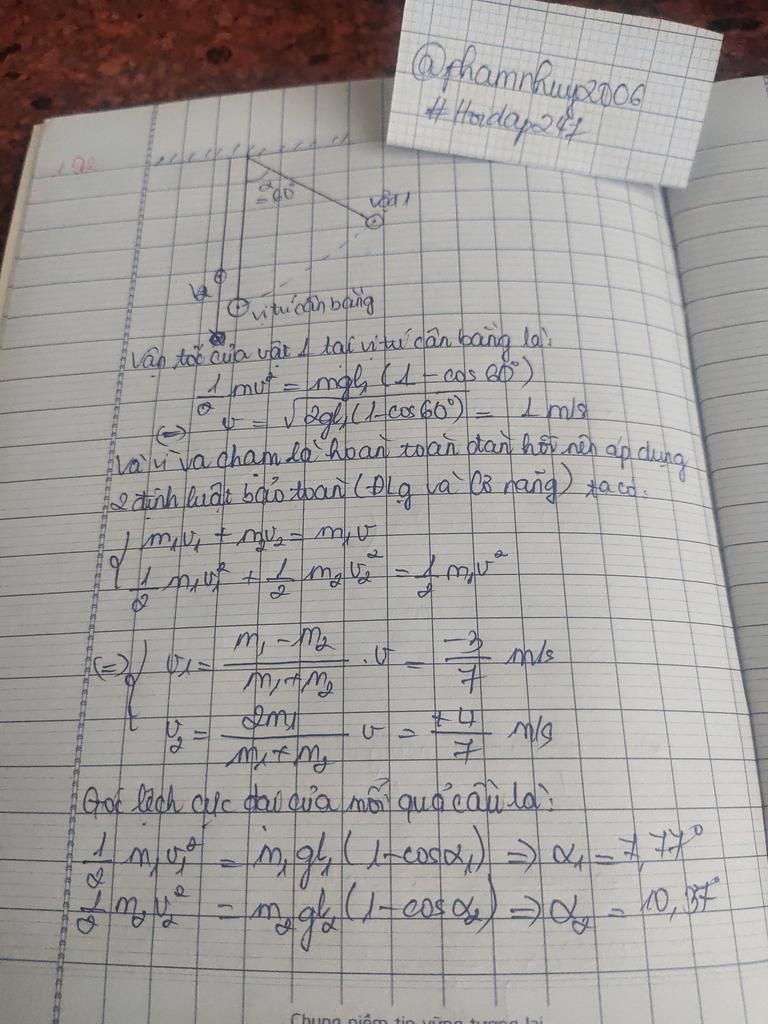 @phamnhuy2006
#Hoidap247
192
α
= 60°
vật 1
V2
vị trí cân bằng
Vận tốc của vật 1 tại vị trí cân bằng là:
1/2 mv² = mgl₁ (1 - cos 60°)
(=) v = √2gl₁(1-cos60°) = 1 m/s
Và vì va chạm là hoàn toàn đàn hồi nên áp dụng
2 định luật bảo toàn (ĐLg và Cơ năng) ta có:
m₁v₁ + m₂v₂ = m₁v
1/2 m₁v₁² + 1/2 m₂v₂² = 1/2 m₁v²
(=) v₁ = (m₁ - m₂)/(m₁ + m₂) . v = -3/7 m/s
v₂ = 2m₁/(m₁ + m₂) v = +4/7 m/s
Góc lệch cực đại của mỗi quả cầu là:
1/2 m₁v₁² = m₁gl₁(1-cosα₁) => α₁ = 7,77°
1/2 m₂v₂² = m₂gl₂(1-cosα₂) => α₂ = 10,37°